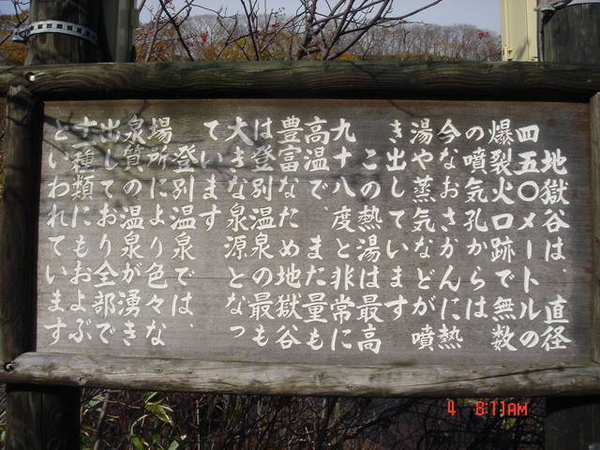 地獄谷は、直径
四五〇メートルの
爆裂火口跡で無数
の噴気孔からは
今なおさかんに熱
湯や蒸気などが噴
き出しています
この熱湯は最高
九十八度と非常に
高温で、また量も
豊富なため地獄谷
は登別温泉の最も
大きな泉源となっ
ています
登別温泉では、
場所により色々な
泉質の温泉が湧き
出しており全部で
十一種類にもおよぶ
といわれています
4 8:11AM